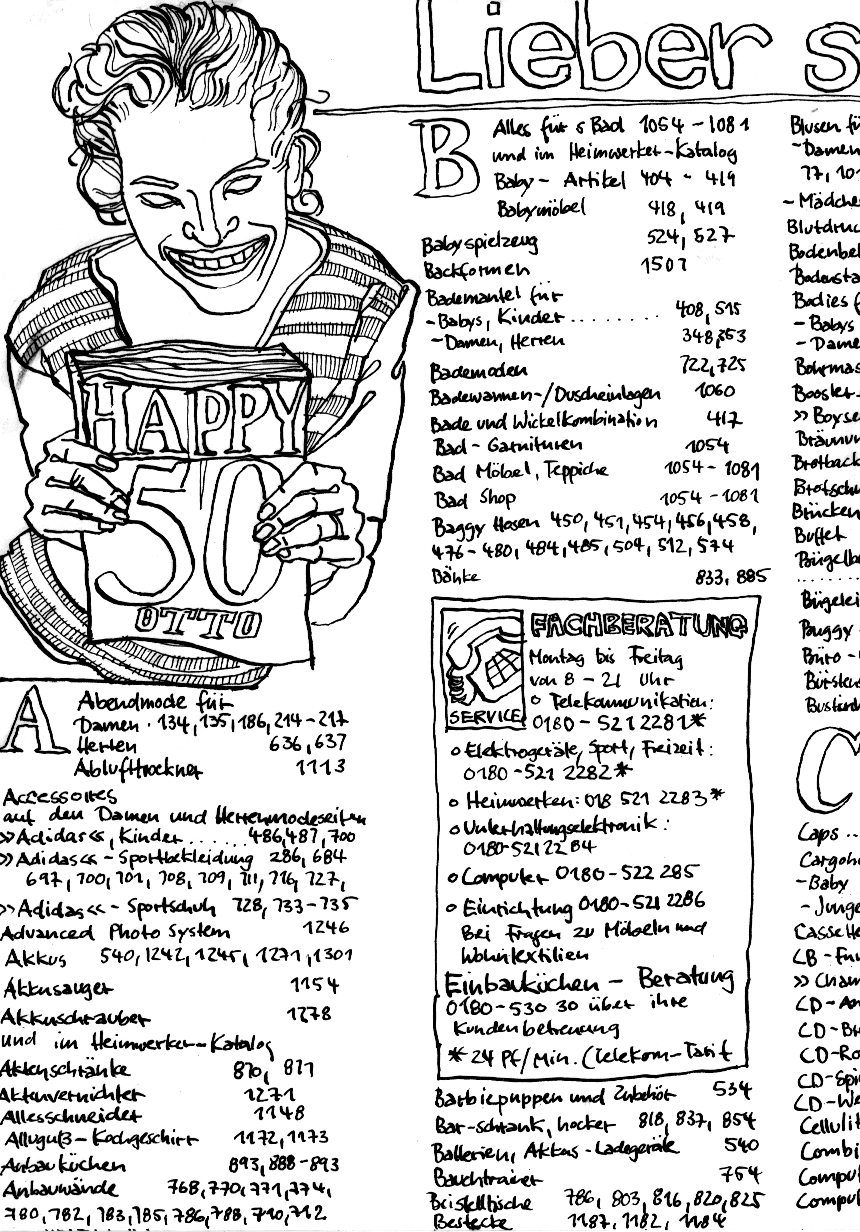 Lieber s
HAPPY
50
OTTO
A
Abendmode für
Damen . 134, 135, 186, 214-217
Herren 636, 637
Ablufttrockner 1113
Accessoires
auf den Damen und Herrenmodeseiten
»Adidas«, Kinder ...... 486, 487, 700
»Adidas« - Sportbekleidung 286, 684
697, 700, 701, 708, 709, 711, 716, 727,
»Adidas« - Sportschuh 728, 733-735
Advanced Photo System 1246
Akkus 540, 1242, 1245, 1271, 1301
Akkusauger 1154
Akkuschrauber 1278
und im Heimwerker-Katalog
Aktenschränke 870, 871
Aktenvernichter 1271
Allesschneider 1148
Alluguß-Kochgeschirr 1172, 1173
Anbauküchen 893, 888-893
Anbauwände 768, 770, 771, 774,
780, 782, 783, 785, 786, 788, 790, 712
B
Alles für s Bad 1054-1081
und im Heimwerker-Katalog
Baby- Artikel 404 - 419
Babymöbel 418, 419
Babyspielzeug 524, 527
Backformen 1507
Bademantel für
-Babys, Kinder ........ 408, 515
-Damen, Herren 348, 353
Bademoden 722, 725
Badewannen-/Duscheinlagen 1060
Bade und Wickelkombination 417
Bad - Garnituren 1054
Bad Möbel, Teppiche 1054-1081
Bad Shop 1054-1081
Baggy Hosen 450, 451, 454, 456, 458,
476-480, 484, 485, 504, 512, 574
Bänke 833, 885
FACHBERATUNG
Montag bis Freitag
von 8 - 21 Uhr
o Telekommunikation:
SERVICE
0180 - 521 2281*
o Elektrogeräte, Sport, Freizeit:
0180-521 2282*
o Heimwerken: 018 521 2283*
o Unterhaltungselektronik:
0180-521 22 84
o Computer 0180-522 285
o Einrichtung 0180-521 2286
Bei Fragen zu Möbeln und
Wohntextilien
Einbauküchen - Beratung
0180-530 30 über ihre
Kundenbetreuung
* 24 Pf/Min. (Telekom-Tarif
Barbiepuppen und Zubehör 534
Bar-schrank, hocker 818, 837, 854
Batterien, Akkus-Ladegeräte 540
Bauchtrainer 754
Beistelltische 786, 803, 816, 820, 825
Bestecke 1187, 1182, 1184
Blusen fü
-Damen
77, 101
- Mädche
Blutdruc
Bodenbel
Bodensta
Bodies f
- Babys
- Dame
Bohrmas
Booster-
» Boyse
Bräunun
Brotback
Brotschn
Brücken
Buffet
Bügelbe
Bügelei
Buggy -
Büro -
Bürsten
Bustier
C
Caps ..
Cargoho
-Baby
- Junge
Cassette
CB - Fun
» Cham
CD - An
CD - Br
CD-Ro
CD-Spi
CD-We
Cellulit
Combi
Comput
Comput